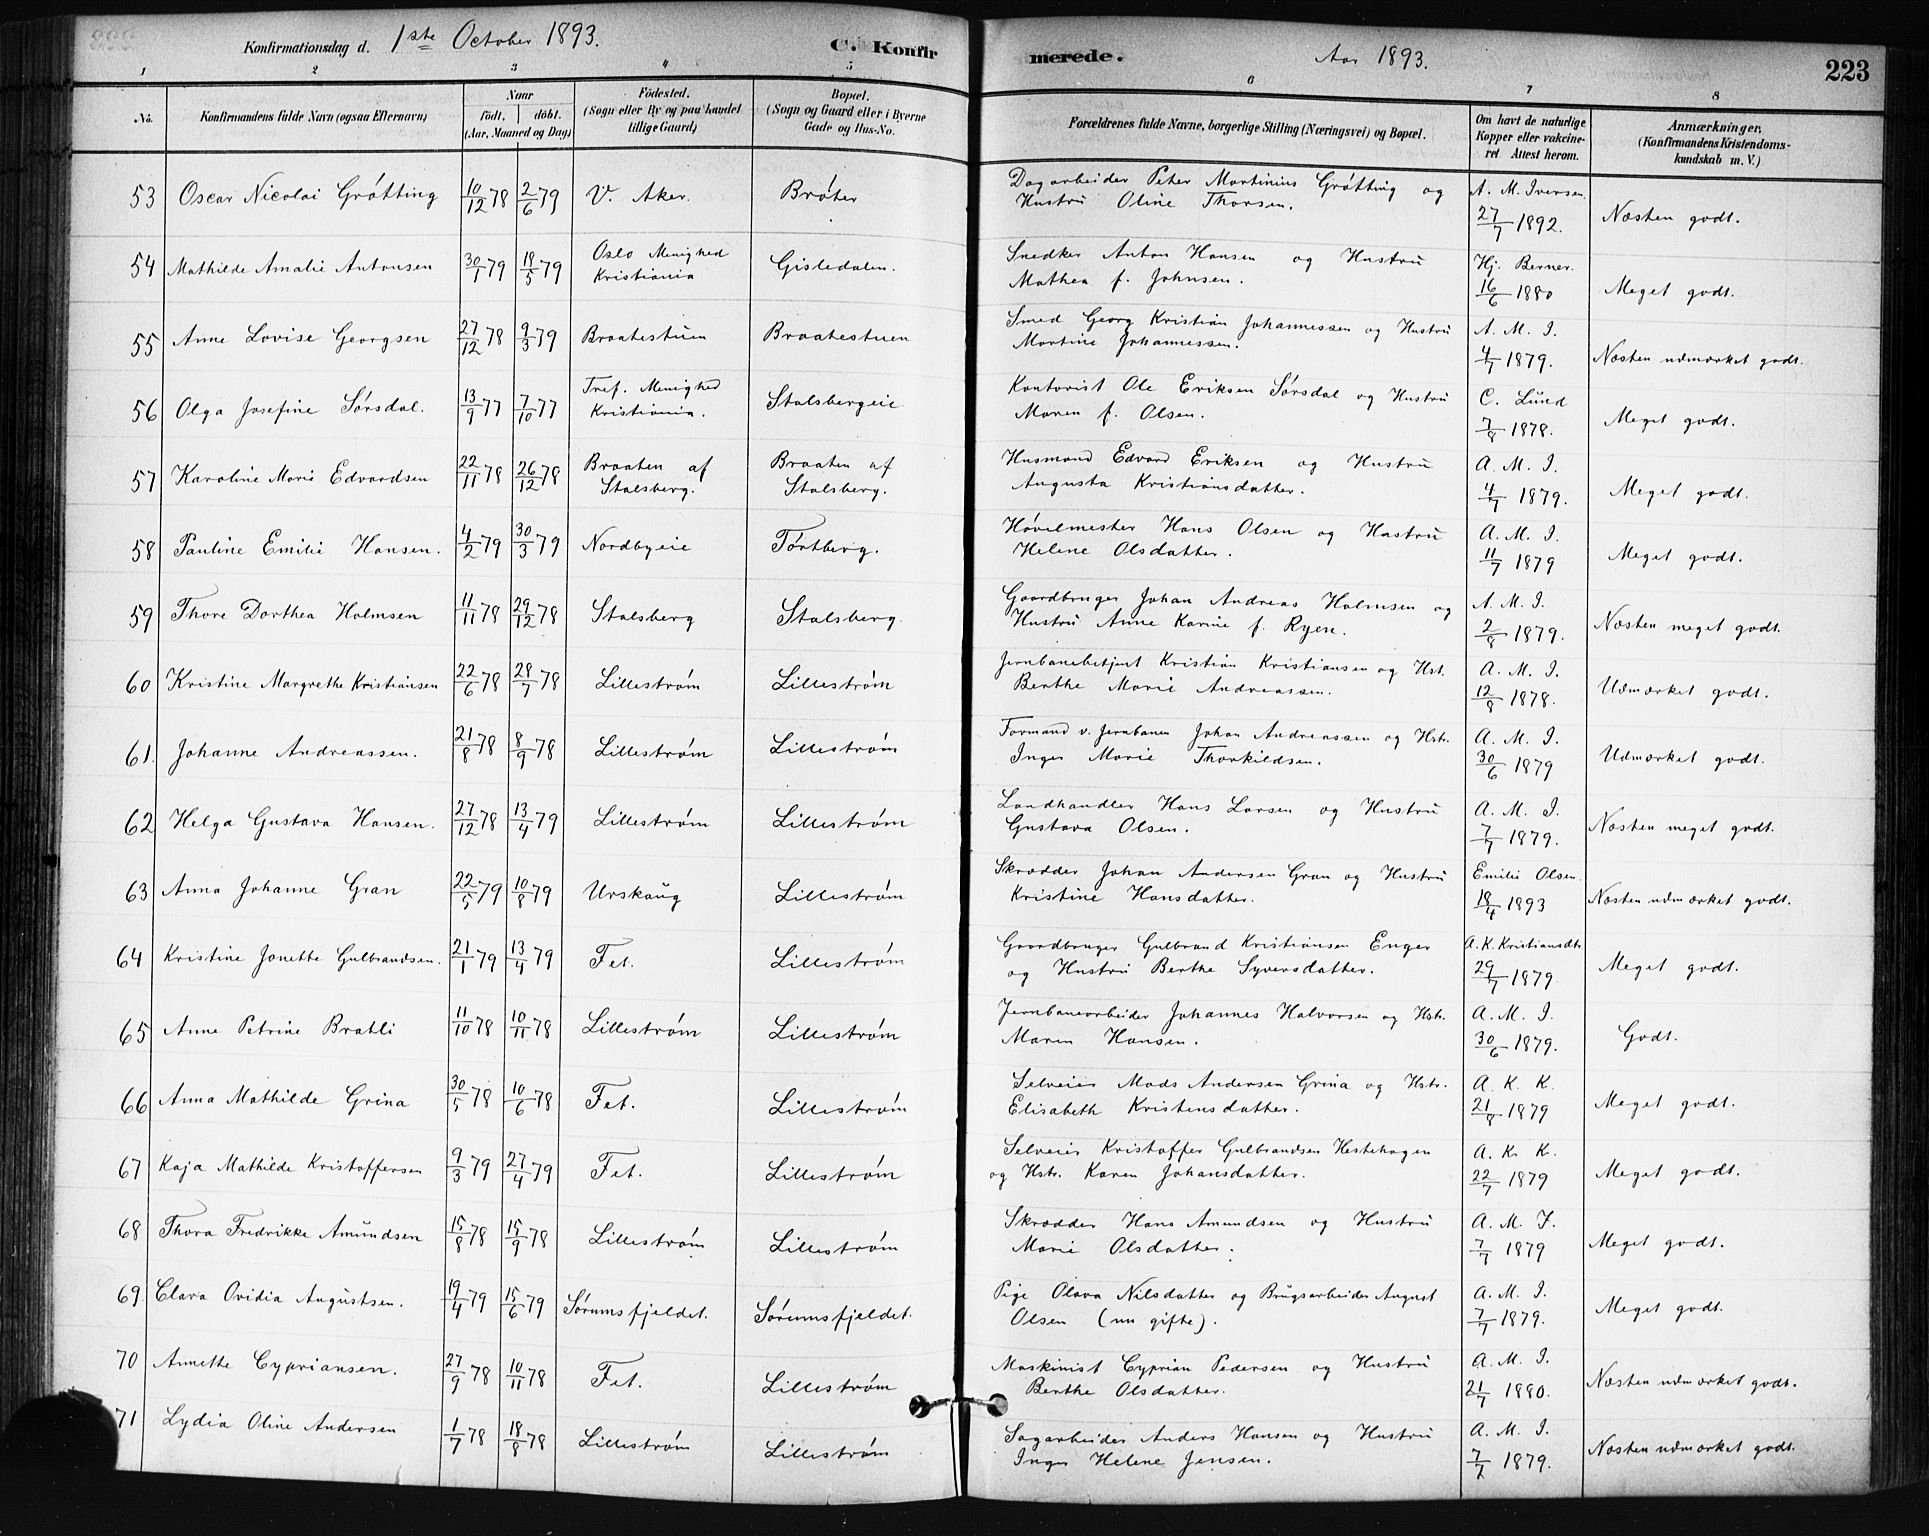 Konfirmationsdag d. 1ste October 1893. C. Konfirmerede. Aar 1893. 223
1 2 3 4 5 6 7 8
No. Konfirmandens fulde Navn (ogsaa Efternavn) Naar födt. döbt. (Aar, Maaned og Dag) Födested. (Sogn eller By og paa Landet tillige Gaard) Bopæl. (Sogn og Gaard eller i Byerne Gade og Hus-No. Forældrenes fulde Navne, borgerlige Stilling (Næringsvei) og Bopæl. Om havt de naturlige Kopper eller vakcineret Attest herom. Anmærkninger, (Konfirmandens Kristendomskundskab m. V.)
53 Oscar Nicolai Grøtting 10/12 78 2/6 79 V. Aker. Brøter Dagarbeider Peter Martinius Grøtting og Hustru Oline Thorsen. A. M. Iversen. 27/7 1892. Næsten godt.
54 Mathilde Amalie Antonsen 30/1 79 18/5 79 Oslo Menighed Kristiania Gisledalen. Snedker Anton Hansen og Hustru Mathea f. Johnsen. Hj. Berner. 16/6 1880 Meget godt.
55 Anne Lovise Georgsen 27/12 78 9/3 79 Braatestuen Braatestuen Smed Georg Kristian Johannessen og Hustru Martine Johannessen. A. M. I. 4/7 1879. Næsten udmærket godt.
56 Olga Josefine Sørsdal. 13/9 77 7/10 77 Tref. Menighed Kristiania. Stalsbergeie Kontorist Ole Eriksen Sørsdal og Hustru Maren f. Olsen. C. Lund 7/8 1878. Meget godt.
57 Karoline Marie Edvardsen 22/11 78 26/12 78 Braaten af Stalsberg. Braaten af Stalsberg. Husmand Edvard Eriksen og Hustru Augusta Kristiansdatter. A. M. I. 4/7 1879. Meget godt.
58 Pauline Emilie Hansen. 4/2 79 30/3 79 Nordbyeie Tørtberg. Høvelmester Hans Olsen og Hustru Helene Olsdatter. A. M. I. 11/7 1879 Meget godt.
59 Thore Dorthea Holmsen 11/11 78 29/12 78 Stalsberg Stalsberg. Gaardbruger Johan Andreas Holmsen og Hustru Anne Karine f. Ryen. A. M. I. 2/8 1879. Næsten meget godt.
60 Kristine Margrethe Kristiansen 22/6 78 28/7 78 Lillestrøm Lillestrøm Jernbanebetjent Kristian Kristiansen og Hst. Berthe Marie Andreassen. A. M. I. 12/8 1878. Udmærket godt.
61. Johanne Andreassen. 21/8 78 8/9 78 Lillestrøm Lillestrøm Formand v. Jernbanen Johan Andreassen og Hstr. Inger Marie Thorkildsen. A. M. I. 30/6 1879 Udmærket godt.
62 Helga Gustava Hansen. 27/12 78 13/4 79 Lillestrøm Lillestrøm Landhandler Hans Larsen og Hustru Gustava Olsen. A. M. I. 7/7 1879. Næsten meget godt.
63 Anna Johanne Gran 22/5 79 10/8 79 Urskaug Lillestrøm Skrædder Johan Andersen Gran og Hustru Kristine Hansdatter. Emilie Olsen. 18/4 1893 Næsten udmærket godt.
64 Kristine Jonette Gulbrandsen. 21/1 79 13/4 79 Fet. Lillestrøm Gaardbruger Gulbrand Kristiansen Enger og Hustru Berthe Syversdatter. A. K. Kristiansdtr. 29/7 1879. Meget godt.
65 Anne Petrine Bratli 11/10 78 10/11 78 Lillestrøm Lillestrøm Jernbanearbeider Johannes Halvorsen og Hstr. Maren Hansen. A. M. I. 30/6 1879. Godt.
66 Anna Mathilde Grina 30/5 78 10/6 78 Fet. Lillestrøm Selveier Mads Andersen Grina og Hstr. Elisabeth Kristensdatter. A. K. K. 21/8 1879 Meget godt.
67 Kaja Mathilde Kristoffersen 9/3 79 27/4 79 Fet. Lillestrøm Selveier Kristoffer Gulbrandsen Hestehagen og Hstr. Karen Johansdatter. A. K. K. 22/7 1879 Meget godt.
68 Thora Fredrikke Amundsen 15/8 78 15/9 78 Lillestrøm Lillestrøm Skrædder Hans Amundsen og Hustru Marie Olsdatter. A. M. I. 7/7 1879 Meget godt.
69. Clara Ovidia Augustsen. 19/4 79 15/6 79 Sørumsfjeldet. Sørumsfjeldet. Pige Olava Nilsdatter og Brugsarbeider August Olsen (nu gifte). A. M. I. 7/7 1879. Meget godt.
70 Annette Cypriansen. 27/9 78 10/11 78 Fet. Lillestrøm Maskinist Cyprian Pedersen og Hustru Berthe Olsdatter. A. M. I. 21/7 1880. Næsten udmærket godt.
71 Lydia Oline Andersen 1/7 78 18/8 78 Lillestrøm Lillestrøm Sagarbeider Anders Hansen og Hustru Inger Helene Jensen. A. M. I. 7/7 1879. Næsten udmærket godt.